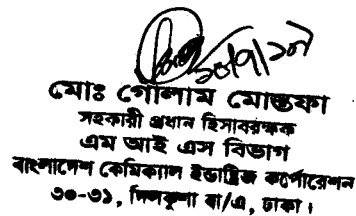 মোঃ গোলাম মোস্তফা
সহকারী প্রধান হিসাবরক্ষক
এম আই এস বিভাগ
বাংলাদেশ কেমিক্যাল ইন্ডাষ্ট্রিজ কর্পোরেশন
৩০-৩১, দিলকুশা বা/এ, ঢাকা।